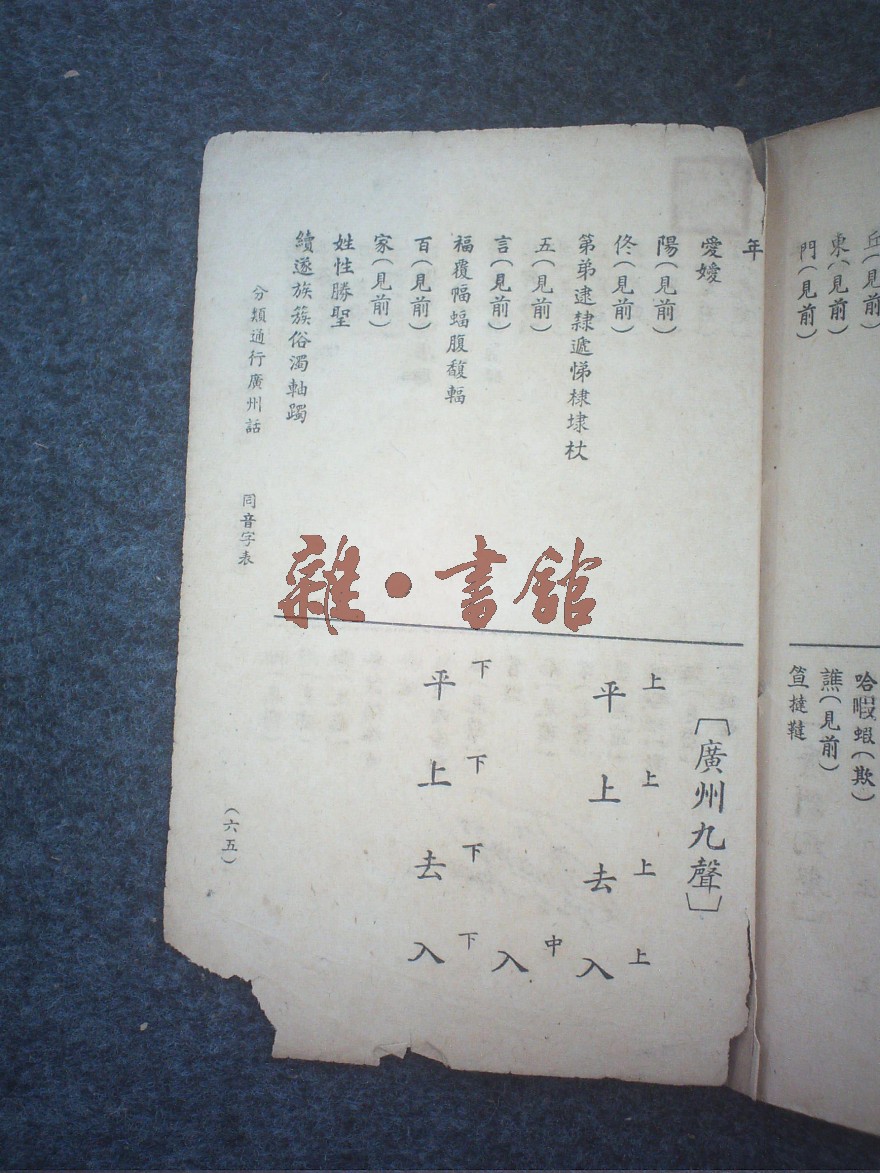 丘(見前)
東(見前)
門(見前)
哈暇蝦(欺)
譙(見前)
笪撻韃
年
愛嬡
陽(見前)
佟(見前)
第弟逮隸遞悌棣埭杕
五(見前)
言(見前)
福覆幅蝠腹馥輻
百(見前)
家(見前)
姓性勝聖
續逐族簇俗濁軸躅
分類通行廣州話 同音字表
(六五)
[廣州九聲]
上平 上上 上去 上入
中入
下平 下上 下去 下入
雜·書館